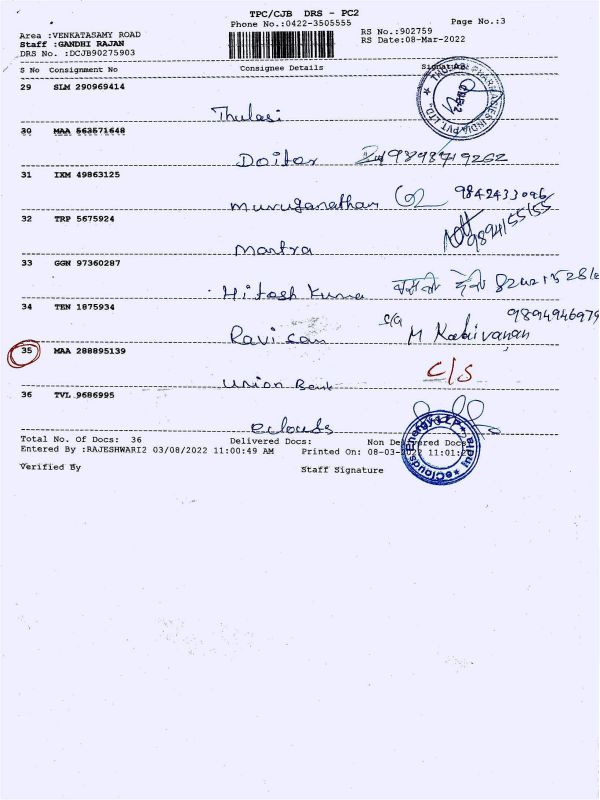 TPC/CJB DRS - PC2
Phone No.:0422-3505555
Page No.:3
Area :VENKATASAMY ROAD
RS No.:902759
Staff :GANDHI RAJAN
RS Date:08-Mar-2022
DRS No. :DCJB90275903
S No Consignment No Consignee Details Signature
29 SLM 290969414
Thulasi
30 MAA 563571648
Doitax
31 IXM 49863125
Muruganathan 9842433096
32 TRP 5675924
Mantra 9894155155
33 GGN 97360287
Hitesh Kumar
34 TEN 1875934
9894946979
Ravi San C/G M Kabivanan
35 MAA 288895139
Union Bank C/S
36 TVL 9686995
eclouds
Total No. Of Docs: 36 Delivered Docs: Non Delivered Docs:
Entered By :RAJESHWARI2 03/08/2022 11:00:49 AM Printed On: 08-03-2022 11:01:
Verified By Staff Signature